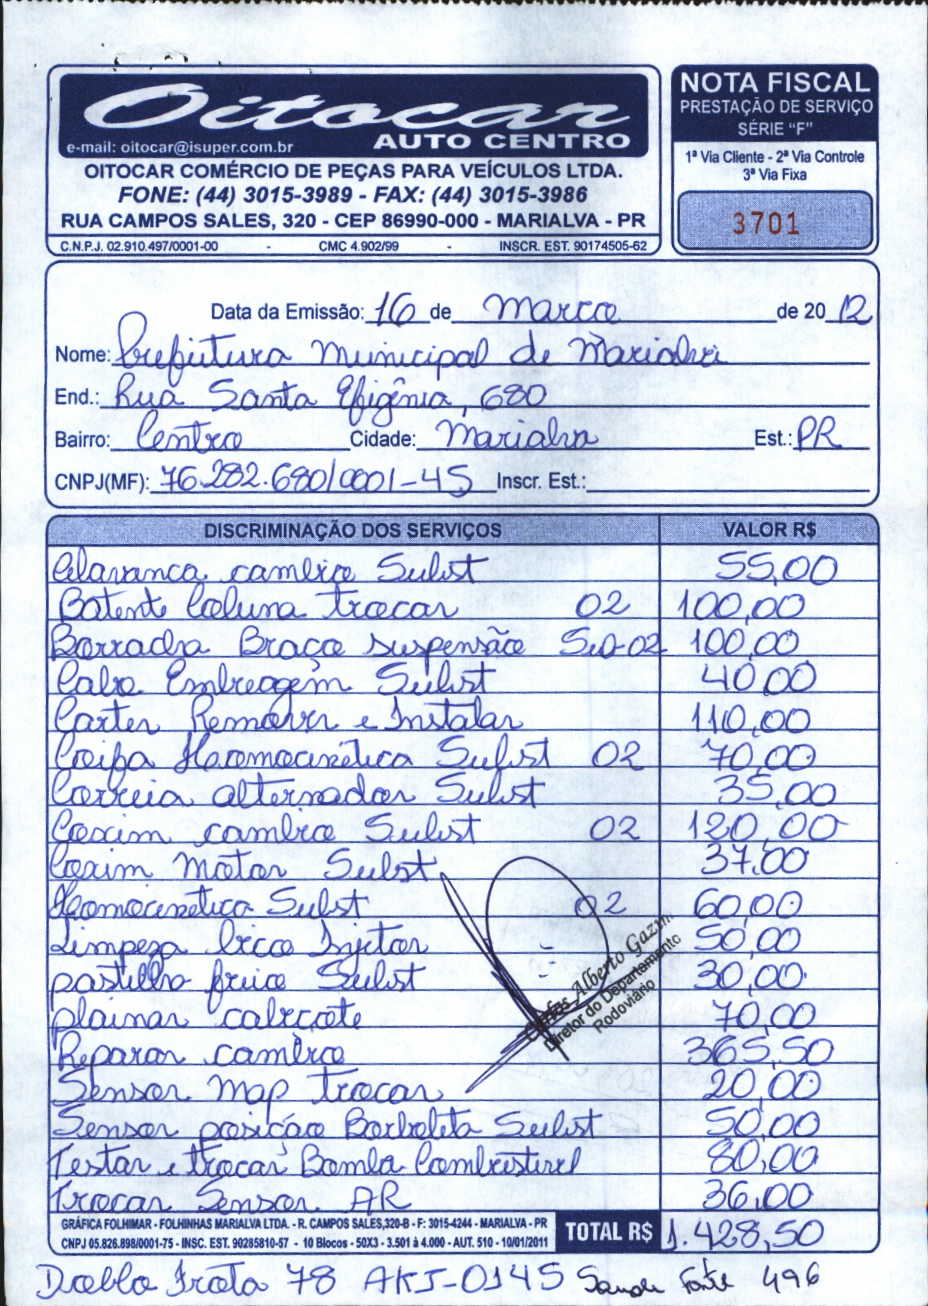 Oitocar
AUTO CENTRO
e-mail: oitocar@isuper.com.br
OITOCAR COMÉRCIO DE PEÇAS PARA VEÍCULOS LTDA.
FONE: (44) 3015-3989 - FAX: (44) 3015-3986
RUA CAMPOS SALES, 320 - CEP 86990-000 - MARIALVA - PR
C.N.P.J. 02.910.497/0001-00 - CMC 4.902/99 - INSCR. EST. 90174505-62
NOTA FISCAL
PRESTAÇÃO DE SERVIÇO
SÉRIE "F"
1ª Via Cliente - 2ª Via Controle
3ª Via Fixa
3701
Data da Emissão: 16 de Março de 2012
Nome: Prefeitura Municipal de Marialva
End.: Rua Santa Efigênia, 680
Bairro: Centro Cidade: Marialva Est.: PR
CNPJ(MF): 76.282.680/0001-45 Inscr. Est.:
DISCRIMINAÇÃO DOS SERVIÇOS VALOR R$
Alavanca cambio Subst 55,00
Batente Coluna trocar 02 100,00
Borracha Braço suspensão Sub 02 100,00
Cabo Embreagem Subst 40,00
Carter Remover e Instalar 110,00
Coifa Homocinética Subst 02 70,00
Correia alternador Subst 35,00
Coxim cambio Subst 02 120,00
Coxim Motor Subst 37,00
Homocinetica Subst 02 60,00
Limpeza bico Injetor 50,00
pastilha freio Subst 30,00
plainar cabeçote 70,00
Reparar cambio 365,50
Sensor Map trocar 20,00
Sensor posição Borboleta Subst 50,00
Testar e trocar Bomba Combustivel 80,00
Trocar Sensor AR 36,00
Alberto Gazin
Diretor do Departamento
Rodoviário
GRÁFICA FOLHIMAR - FOLHINHAS MARIALVA LTDA. - R. CAMPOS SALES,320-B - F: 3015-4244 - MARIALVA - PR
CNPJ 05.826.898/0001-75 - INSC. EST. 90285810-57 - 10 Blocos - 50X3 - 3.501 à 4.000 - AUT. 510 - 10/01/2011
TOTAL R$ 1.428,50
Doblo Frota 78 AKJ-0145 Fonte 496